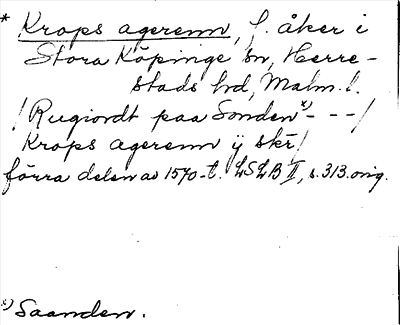 * Krops agerenn, f. åker i
Stora Köpinge sn, Herre-
stads hd, Malm. l.
/ Rugiordt paa Sonden x) - - - /
Krops agerenn ÿ skr /
förra delen av 1570-t. LSLB II, s. 313. orig.
x) Saanden.